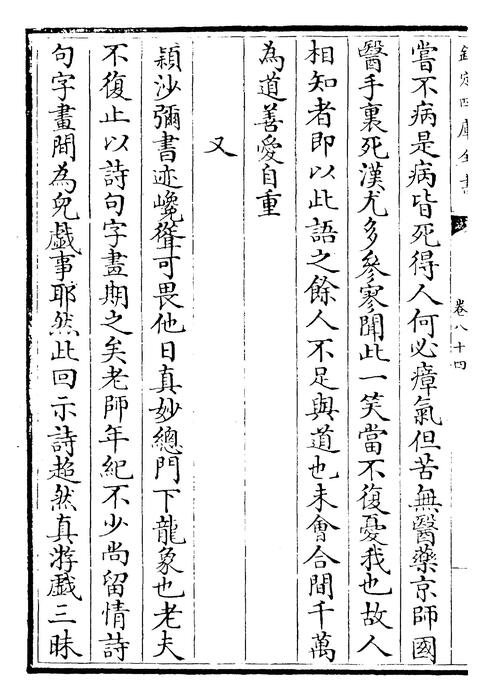 欽定四庫全書
卷八十四
嘗不病是病皆死得人何必瘴氣但苦無醫藥京師國
醫手裏死漢尤多參寥聞此一笑當不復憂我也故人
相知者即以此語之餘人不足與道也未會合間千萬
為道善愛自重
又
穎沙彌書迹巉聳可畏他日真妙總門下龍象也老夫
不復止以詩句字畫期之矣老師年紀不少尚留情詩
句字畫間為兒戲事耶然此回示詩超然真游戲三昧